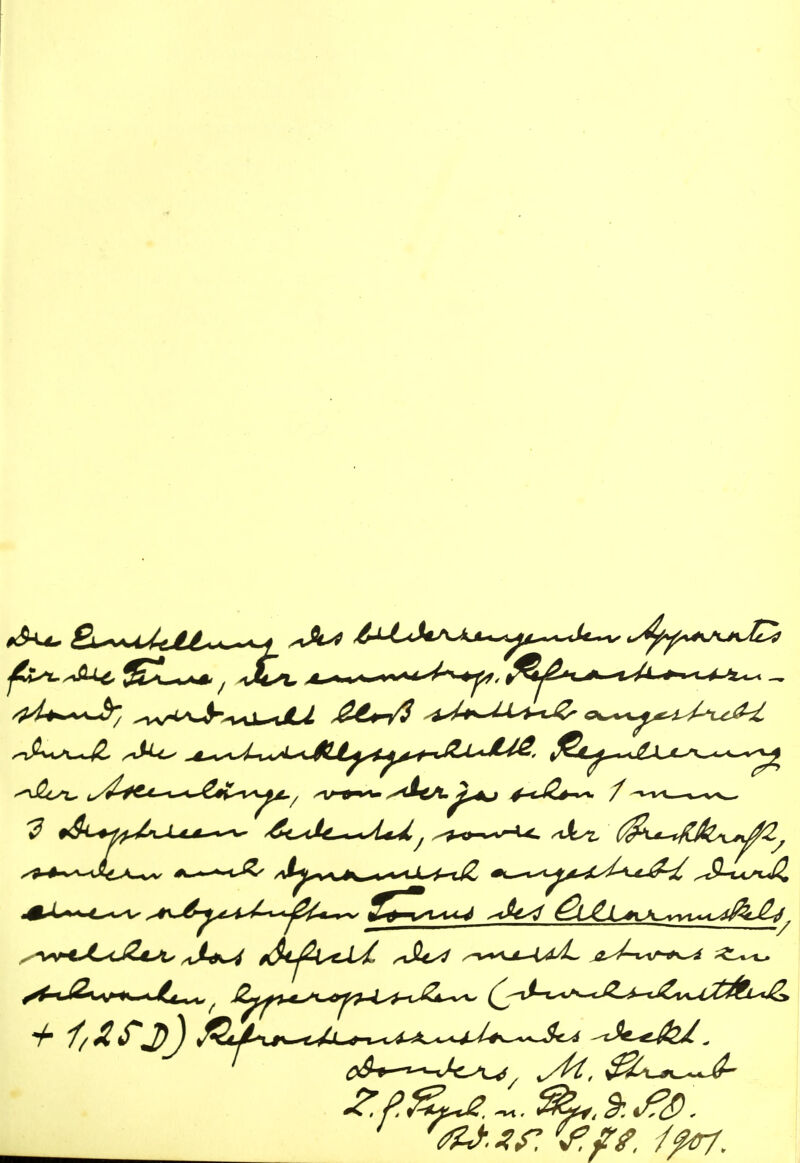 Die Einstellung des bilderzeugenden Apparates
für die Ferne, der emmetrop. Refractionszu-
stand, wird nicht bloß statisch angestrebt
durch die entwicklungsgeschichtl. Regulierung
der Axenlänge, von der ja schon 1 mm
3 Dioptrien bedeutet, sowie der Brechkraft,
sondern auch dynamisch angestrebt durch
einen abgestuften Tonus des Ciliarmuskels,
welcher das Deficit des meist etwas zu
schwachen, hyperopischen (durchschnittlich
+ 1,25 D) Refractionszustandes deckt.
Sonders, M. Straub
Z. f. Psych. u. Phys. d. S.O.
Bd. 25. S. 78. 1901.